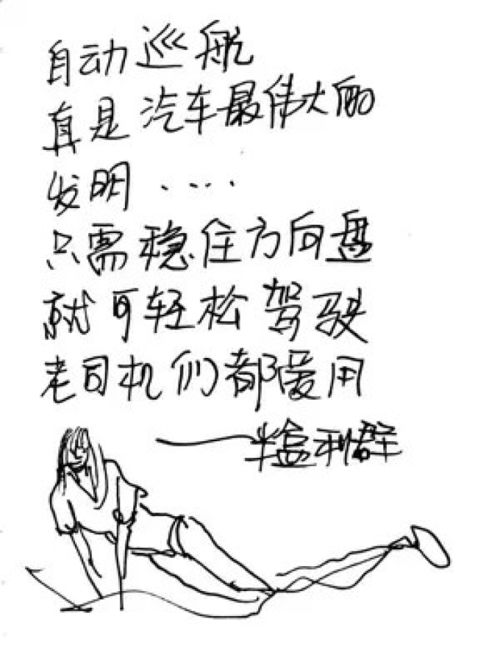 自动巡航
真是汽车最伟大的
发明....
只需稳住方向盘
就可轻松驾驶
老司机们都爱用
——半盒利群